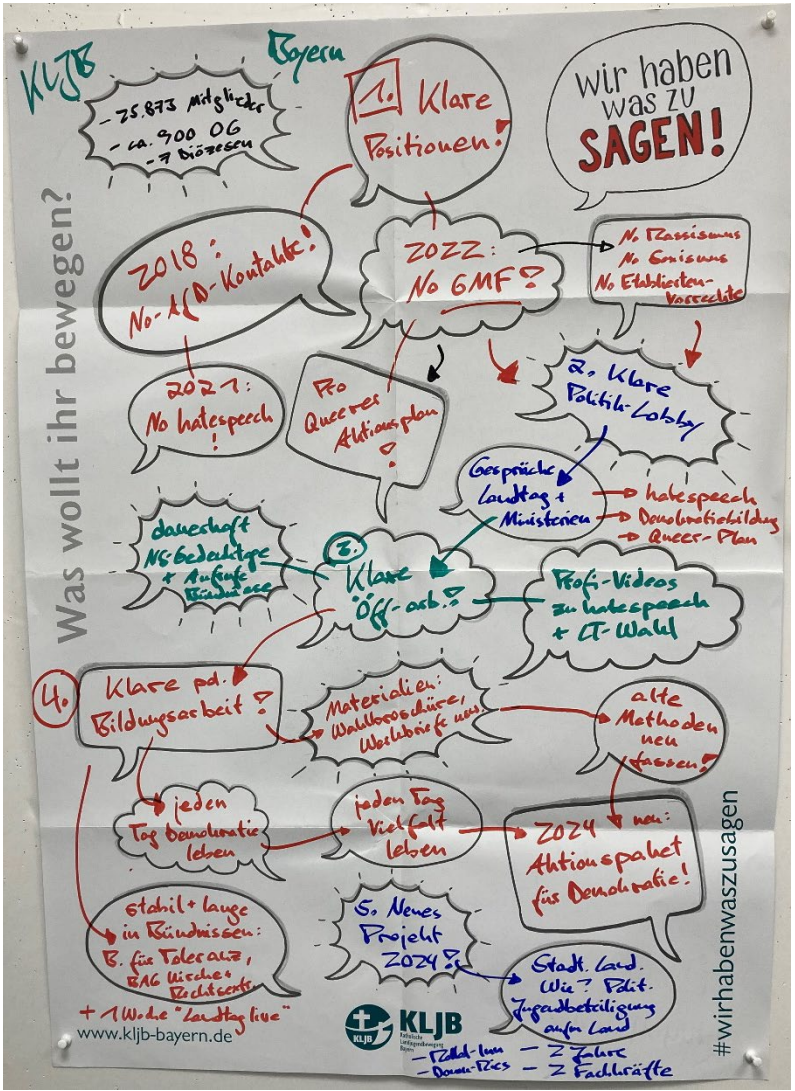 KLJB Bayern
- 25.873 Mitglieder
- ca. 900 OG
- 7 Diözesen
1. Klare
Positionen!
wir haben
was zu
SAGEN!
Was wollt ihr bewegen?
2018:
No-AfD-Kontakte!
2022:
No GMF!
No Rassismus
No Sexismus
No Etablierten-
vorrechte
2021:
No hatespeech
!
Pro
Queerer
Aktionsplan
!
2. Klare
Politik-Lobby
Gespräche
Landtag +
Ministerien
hatespeech
Demokratiebildung
Queer-Plan
dauerhaft
NS-Gedenktage
+ Aufrufe
Bündnisse
3.
Klare
Öff-arb.!
Profi-Videos
zu hatespeech
+ LT-Wahl
4.
Klare pol.
Bildungsarbeit!
Materialien:
Wahlbroschüre,
Werkbriefe usw.
alte
Methoden
neu
fassen!
jeden
Tag Demokratie
leben
jeden Tag
Vielfalt
leben
2024 neu:
Aktionspaket
für Demokratie!
stabil + lange
in Bündnissen:
B. für Toleranz,
BAG Kirche +
Rechtsextr.
+ 1 Woche "Landtag live"
5. Neues
Projekt
2024!
Stadt. Land.
Wie? Polit.
Jugendbeteiligung
aufm Land
- Donau-Ries
- 2 Jahre
- 2 Fachkräfte
www.kljb-bayern.de
KLJB
KLJB
Katholische
Landjugendbewegung
Bayern
#wirhabenwaszusagen